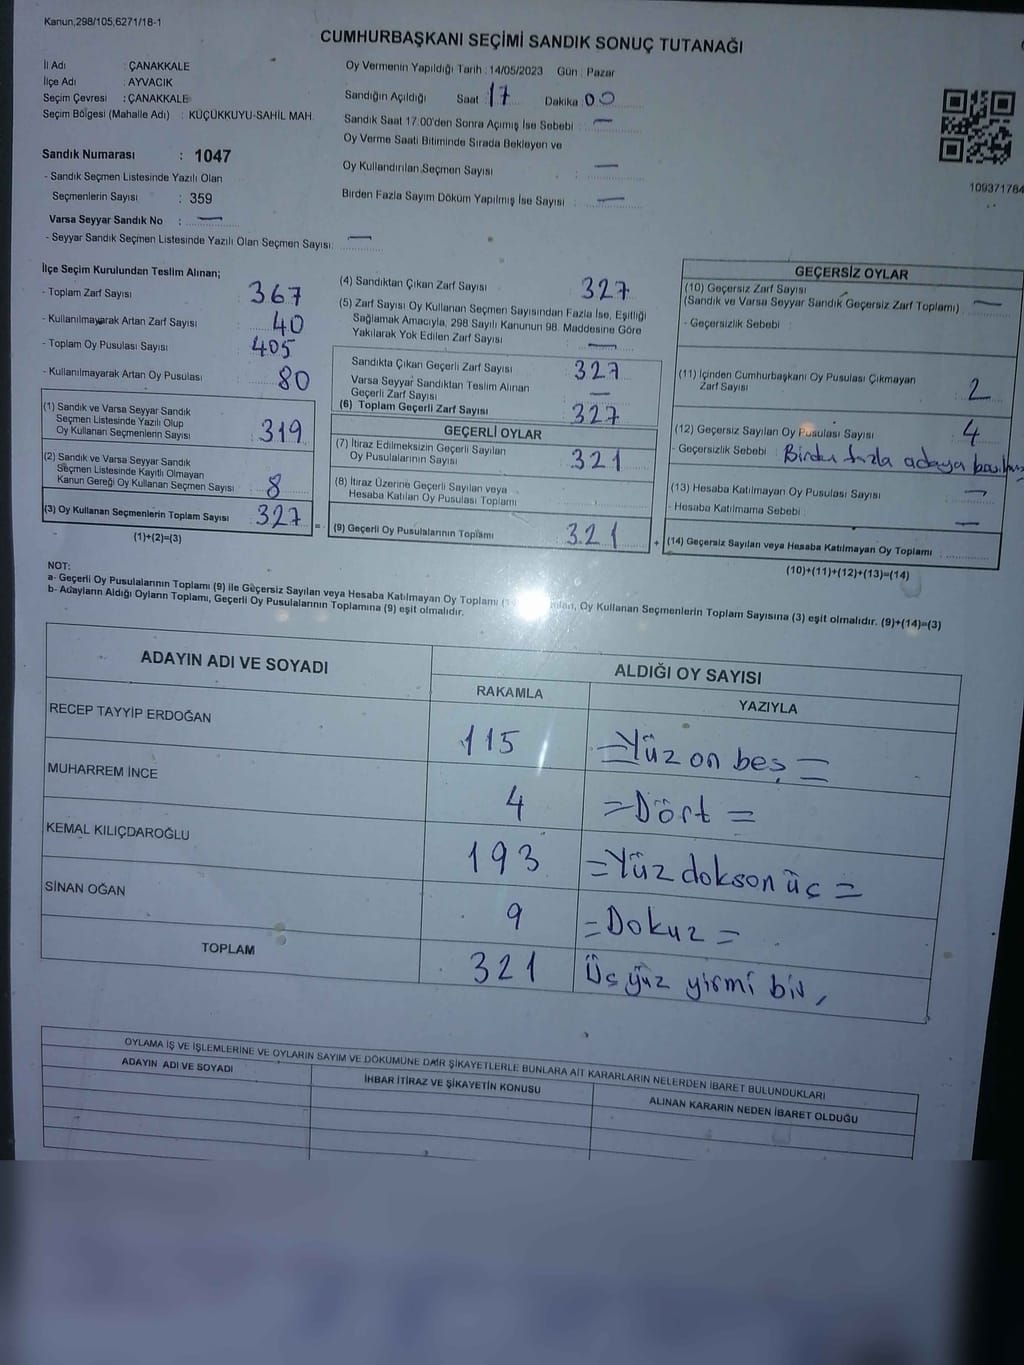 Kanun,298/105,6271/18-1
CUMHURBAŞKANI SEÇİMİ SANDIK SONUÇ TUTANAĞI
İl Adı : ÇANAKKALE
İlçe Adı : AYVACIK
Seçim Çevresi : ÇANAKKALE
Seçim Bölgesi (Mahalle Adı) : KÜÇÜKKUYU-SAHİL MAH.
Sandık Numarası : 1047
- Sandık Seçmen Listesinde Yazılı Olan
Seçmenlerin Sayısı : 359
Varsa Seyyar Sandık No : —
- Seyyar Sandık Seçmen Listesinde Yazılı Olan Seçmen Sayısı: —
Oy Vermenin Yapıldığı Tarih : 14/05/2023 Gün : Pazar
Sandığın Açıldığı Saat 17 Dakika 00
Sandık Saat 17:00'den Sonra Açımış İse Sebebi : —
Oy Verme Saati Bitiminde Sırada Bekleyen ve
Oy Kullandırılan Seçmen Sayısı : —
Birden Fazla Sayım Döküm Yapılmış İse Sayısı : —
109371784
İlçe Seçim Kurulundan Teslim Alınan;
- Toplam Zarf Sayısı 367
- Kullanılmayarak Artan Zarf Sayısı 40
- Toplam Oy Pusulası Sayısı 405
- Kullanılmayarak Artan Oy Pusulası 80
(1) Sandık ve Varsa Seyyar Sandık
Seçmen Listesinde Yazılı Olup
Oy Kullanan Seçmenlerin Sayısı 319
(2) Sandık ve Varsa Seyyar Sandık
Seçmen Listesinde Kayıtlı Olmayan
Kanun Gereği Oy Kullanan Seçmen Sayısı 8
(3) Oy Kullanan Seçmenlerin Toplam Sayısı 327 =
(1)+(2)=(3)
(4) Sandıktan Çıkan Zarf Sayısı 327
(5) Zarf Sayısı Oy Kullanan Seçmen Sayısından Fazla İse, Eşitliği
Sağlamak Amacıyla, 298 Sayılı Kanunun 98. Maddesine Göre
Yakılarak Yok Edilen Zarf Sayısı —
Sandıkta Çıkan Geçerli Zarf Sayısı 327
Varsa Seyyar Sandıktan Teslim Alınan
Geçerli Zarf Sayısı —
(6) Toplam Geçerli Zarf Sayısı 327
GEÇERLİ OYLAR
(7) İtiraz Edilmeksizin Geçerli Sayılan
Oy Pusulalarının Sayısı 321
(8) İtiraz Üzerine Geçerli Sayılan veya
Hesaba Katılan Oy Pusulası Toplamı
(9) Geçerli Oy Pusulalarının Toplamı 321 +
GEÇERSİZ OYLAR
(10) Geçersiz Zarf Sayısı
(Sandık ve Varsa Seyyar Sandık Geçersiz Zarf Toplamı) —
- Geçersizlik Sebebi :
(11) İçinden Cumhurbaşkanı Oy Pusulası Çıkmayan
Zarf Sayısı 2
(12) Geçersiz Sayılan Oy Pusulası Sayısı 4
- Geçersizlik Sebebi : Birden fazla adaya
(13) Hesaba Katılmayan Oy Pusulası Sayısı —
- Hesaba Katılmama Sebebi : —
(14) Geçersiz Sayılan veya Hesaba Katılmayan Oy Toplamı
(10)+(11)+(12)+(13)=(14)
NOT:
a- Geçerli Oy Pusulalarının Toplamı (9) ile Geçersiz Sayılan veya Hesaba Katılmayan Oy Toplamı Oy Kullanan Seçmenlerin Toplam Sayısına (3) eşit olmalıdır. (9)+(14)=(3)
b- Adayların Aldığı Oyların Toplamı, Geçerli Oy Pusulalarının Toplamına (9) eşit olmalıdır.
ADAYIN ADI VE SOYADI ALDIĞI OY SAYISI
RAKAMLA YAZIYLA
RECEP TAYYİP ERDOĞAN 115 =Yüz on beş=
MUHARREM İNCE 4 =Dört=
KEMAL KILIÇDAROĞLU 193 =Yüz dokson üç=
SİNAN OĞAN 9 =Dokuz=
TOPLAM 321 Üç yüz yirmi bir,
OYLAMA İŞ VE İŞLEMLERİNE VE OYLARIN SAYIM VE DÖKÜMÜNE DAİR ŞİKAYETLERLE BUNLARA AİT KARARLARIN NELERDEN İBARET BULUNDUKLARI
ADAYIN ADI VE SOYADI İHBAR İTİRAZ VE ŞİKAYETİN KONUSU ALINAN KARARIN NEDEN İBARET OLDUĞU